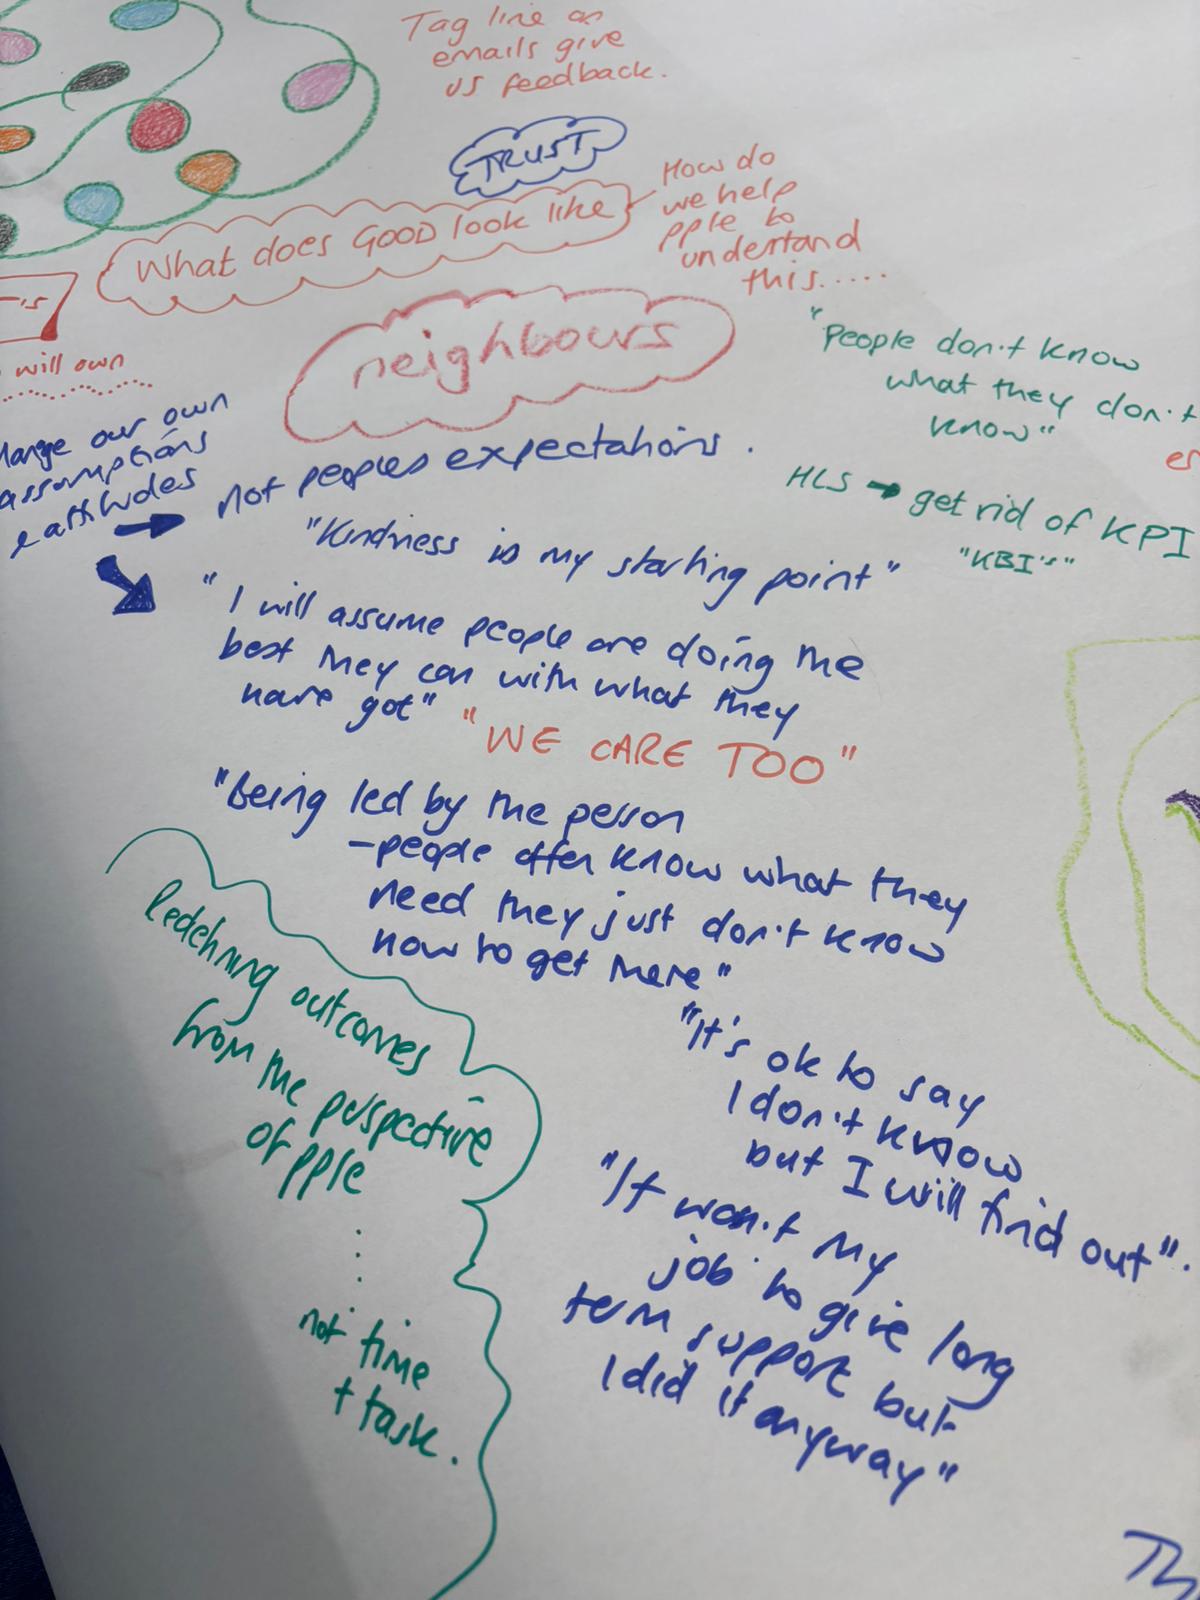 Tag line on
emails give
us feedback.
TRUST
What does GOOD look like
How do
we help
pple to
understand
this.....
neighbours
will own
our own
assumptions
attitudes
not peoples expectations.
"People don't know
what they don't
know"
HLS → get rid of KPI
"KBI's"
"Kindness is my starting point"
"I will assume people are doing the
best they can with what they
have got"
"WE CARE TOO"
"Being led by the person
- people often know what they
need they just don't know
how to get there"
Redefining outcomes
from the perspective
of pple
not time
+ task.
"It's ok to say
I don't know
but I will find out".
"It won't my
job to give long
term support but
I did it anyway"